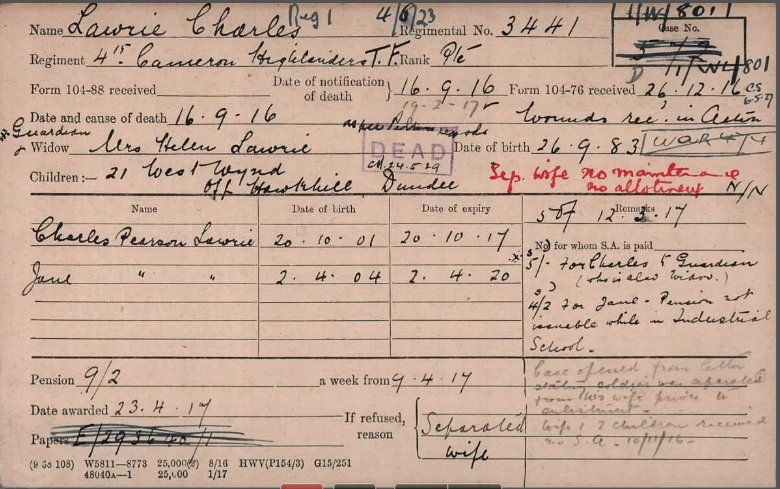 Reg 1 4/6/23 1/W/8011
Name Lawrie Charles Regimental No. 3441 Case No.
Regiment 4th Cameron Highlanders T.F. Rank Pte D 1/WL/801
Form 104-88 received Date of notification of death } 16.9.16 Form 104-76 received 26.12.16
19-2-17
Date and cause of death 16.9.16 Wounds rec. in Action
Guardian
& Widow Mrs Helen Lawrie DEAD Date of birth 26.9.83
Children:— 21 West Wynd Sep. wife no maintenance
off Hawkhill, Dundee no allotment N/N
Name Date of birth Date of expiry Remarks
12.3.17
Charles Pearson Lawrie 20.10.01 20.10.17 No) for whom S.A. is paid
Jane " " 2.4.04 2.4.20 5/- For Charles & Guardian
(who is also Widow.)
4/2 For Jane - Pension not
issuable while in Industrial
School.
Pension 9/2 a week from 9.4.17 Case opened from letter
stating soldier was separated
from his wife prior to
enlistment.
Date awarded 23.4.17 If refused, reason Separated wife
Wife & 2 children received
no S.A. 10/11/16-
Papers
(9 38 108) W5811—8773 25,000(2) 8/16 HWV(P154/3) G15/251
48040a—1 25,000 1/17